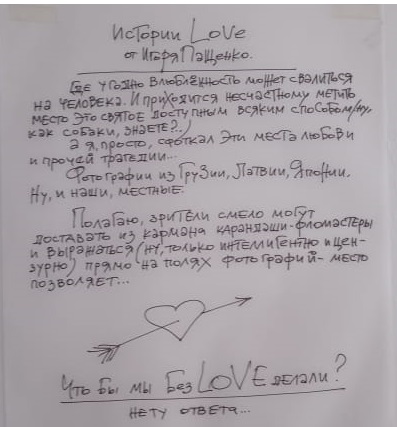 Истории LOVE
от Игоря Пащенко.
Где угодно влюблённость может свалиться
на человека. И приходится несчастному метить
место это святое доступным всяким способом (ну,
как собаки, знаете?..)
А я, просто, сфоткал эти места любови
и прочей трагедии...
Фотографии из Грузии, Латвии, Японии.
Ну, и наши, местные.
Полагаю, зрители смело могут
доставать из кармана карандаши-фломастеры
и выражаться (ну, только интеллигентно и цен-
зурно) прямо на полях фотографий - место
позволяет...
Что бы мы без LOVE делали?
нету ответа...